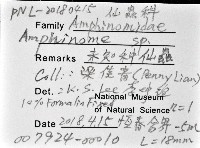 PNL-20180415 仙蟲科
Family Amphinomidae
Amphinome sp.
Remarks 未知种仙蟲
Coll: 梁佳音(Penny Lian)
Det. K.S. Lee
10% Formalin Fixed National Museum of Natural Science L-1
Date 2018.4.15 -5m
007924-00010 L=18mm